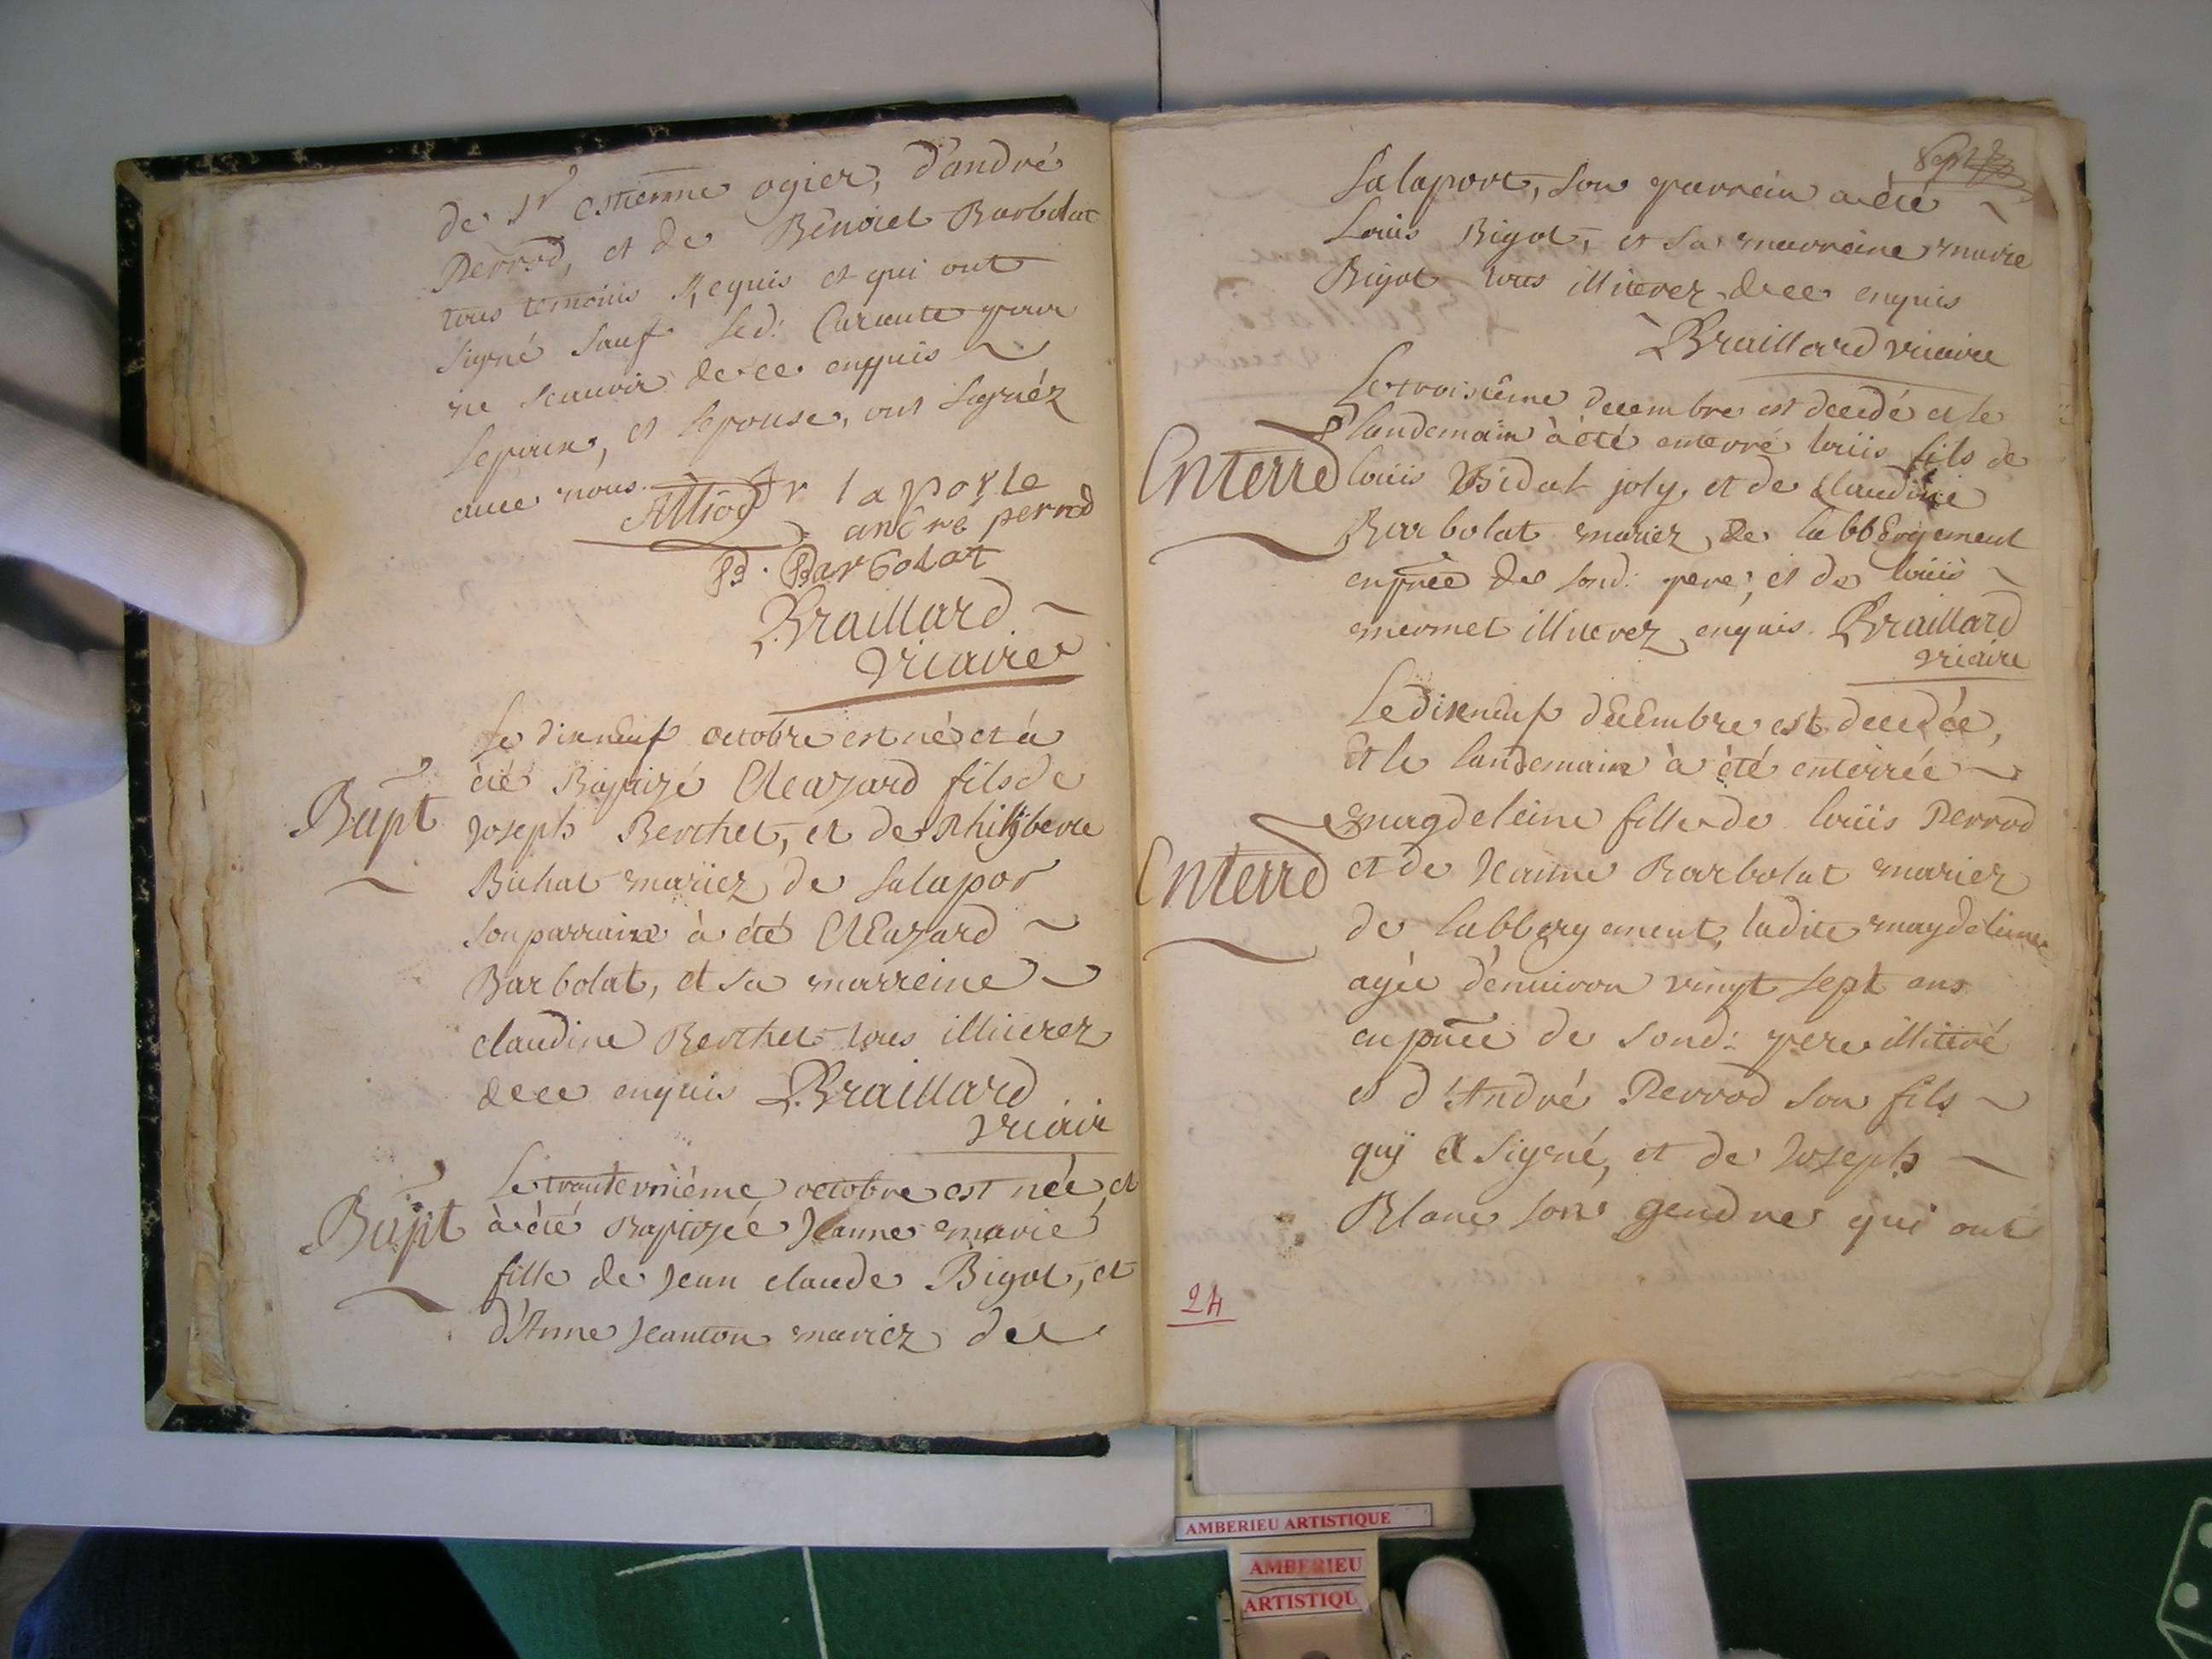 de Sr estienne ogier, d'andré
Perrod, et de Benoiet Barbolat
tous temoins Requis et qui ont
signé sauf led: Curante pour
ne scauoir de ce enquis
Lepoux, et lepouse, ont signéz
auec nous.
Alliod Jr laporte
andré perrod
B. Barbolat
Braillard
vicaire
Le dixneuf octobre est né et à
Bapt
été Baptizé Eleazard fils de
Joseph Berthet, et de Philyberte
Bichat mariez de salapor
son parrain à été Eleazard
Barbolat, et sa marreine
claudine Berthet tous illiterez
de ce enquis Braillard
vicair
Le trenteunième octobre est née et
Bapt
à été Baptizée Jeanne marie
fille de Jean claude Bigot, et
d'Anne Jeanton mariez de
Salaport, son parrein a été
Louis Bigot, et sa marreine marie
Bigot tous illiterez de ce enquis
Braillard vicaire
Le troisième decembre est decedé et le
landemain à été enterré loüis fils de
Enterré
loüis Bidat joly, et de Claudine
Barbolat mariez de labbergement
en pnce de sond: pere, et de loüis
mermet illiterez enquis. Braillard
vicaire
Le dixneuf decembre est decedée,
Et le landemain à été enterrée
magdeleine fille de loüis Perrod
Enterré
et de Jeanne Barbolat mariez
de labbergement, ladite magdeleine
agée d'enuiron vingt sept ans
en pnce de sond: pere illiteré
et d'André Perrod son fils
quÿ a signé, et de Joseph
Blanc son gendre qui ont
24
AMBERIEU ARTISTIQUE
AMBERIEU
ARTISTIQU